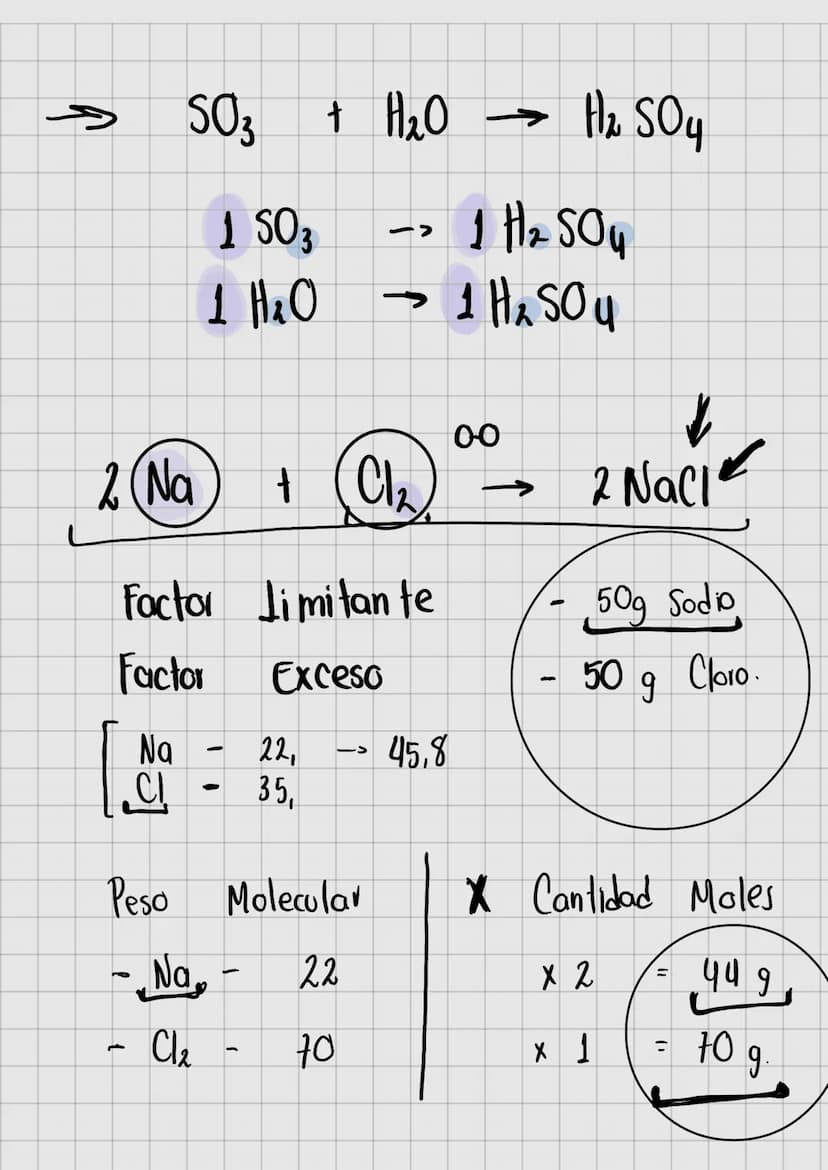 => SO₃ + H₂O → H₂SO₄
1 SO₃ --> 1 H₂SO₄
1 H₂O → 1 H₂SO₄
2 Na + Cl₂ → 2 NaCl
Factor limitante
Factor Exceso
- 50g Sodio
- 50 g Cloro.
Na - 22, --> 45,8
Cl - 35,
Peso Molecular
- Na - 22
- Cl₂ - 70
X Cantidad Moles
x 2 = 44 g
x 1 = 70 g.